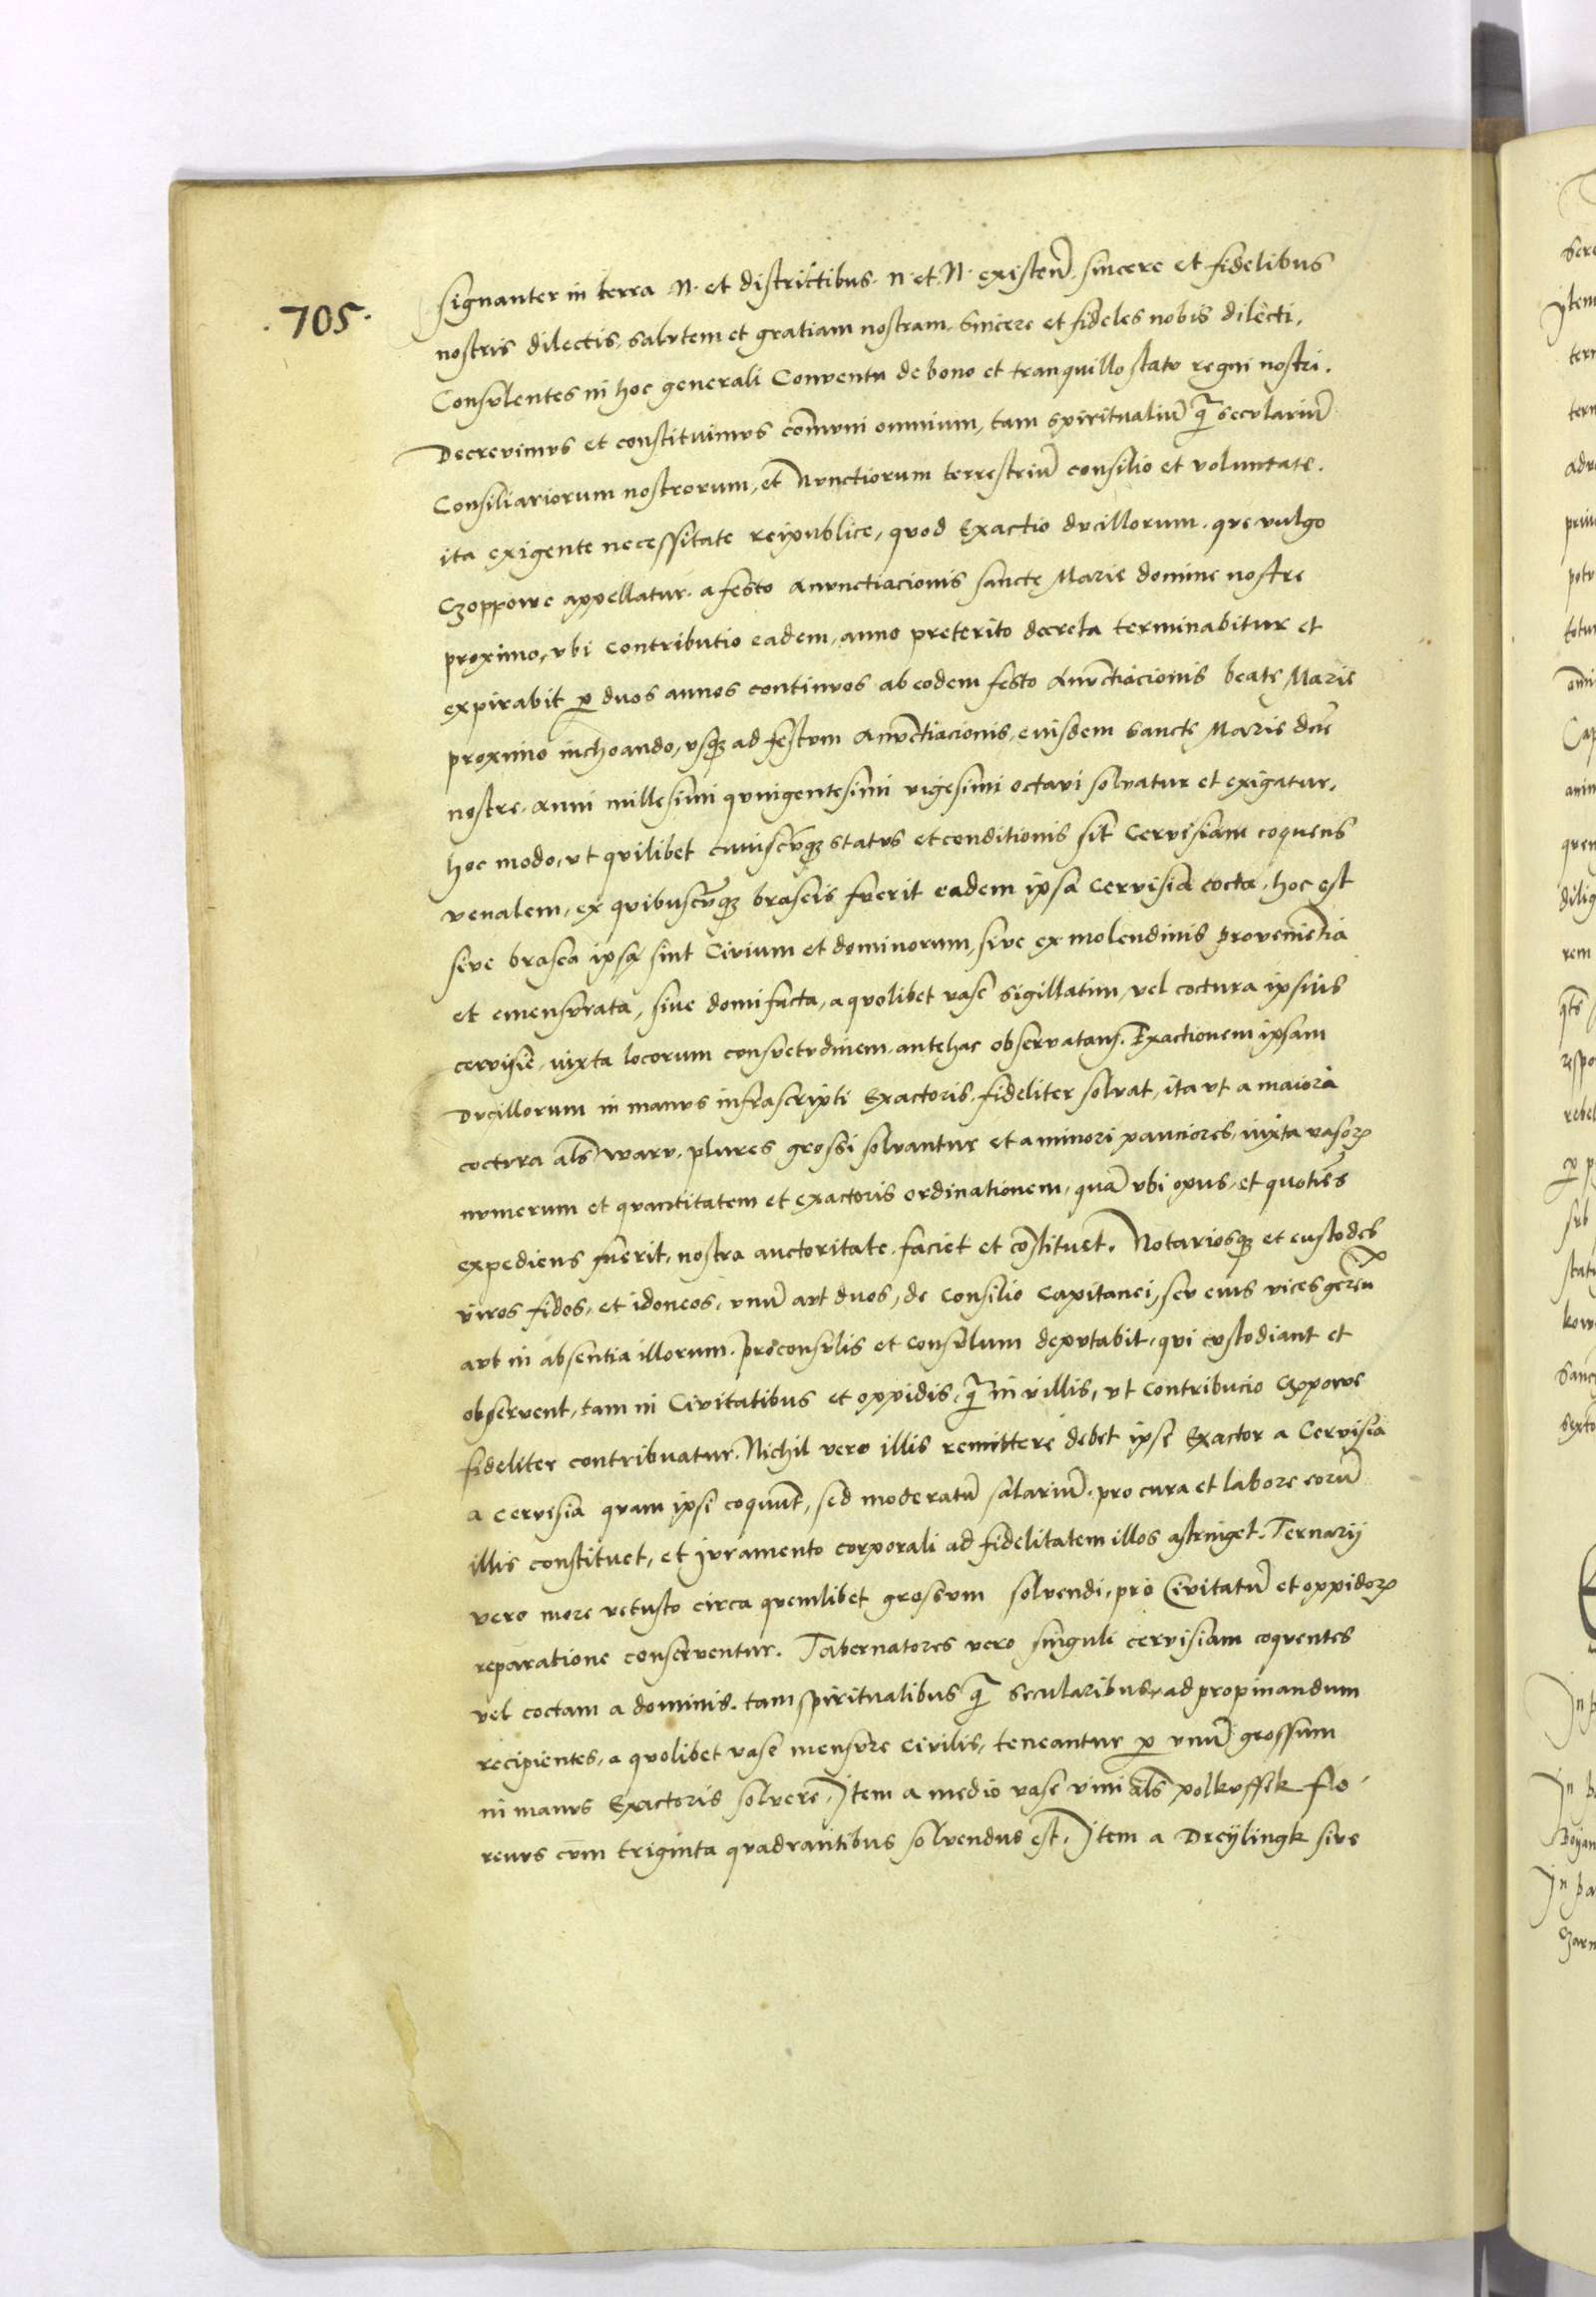 .705.
signanter in terra N. et districtibus. N. et N. existen̄. sincere et fidelibus
nostris dilectis, salutem et gratiam nostram. Sincere et fideles nobis dilecti.
Consulentes in hoc generali Conventu de bono et tranquillo statu regni nostri.
Decrevimus et constituimus com̄uni omnium, tam spiritualiū q̄ seculariū
Consiliariorum nostrorum, et Nunctiorum terrestriū consilio et voluntate.
ita exigente necessitate reipublice, quod Exactio ducillorum. que vulgo
Czoppowe appellatur. a festo Anunctiacionis sancte Marie domine nostre
proximo, ubi contributio eadem, anno preterito decreta terminabitur et
expirabit p duos annos continuos ab eodem festo Anūctiacionis beate Marie
proximo inchoando, usq; ad festum Anūctiacionis, eiusdem sancte Marie dn̄e
nostre. anni millesimi quingentesimi vigesimi octavi solvatur et exigatur.
hoc modo, ut quilibet cuiuscūq; status et conditionis sit Cervisiam coquens
venalem, ex quibuscūq; braseis fuerit eadem ipsa Cervisia cocta, hoc est
sive brasea ipsa sint Civium et dominorum, sive ex molendinis proveniētia
et emensurata, sive domi facta, a quolibet vase sigillatim, vel coctura ipsius
cervisie, iuxta locorum consuetudinem. antehac observatam. Exactionem ipsam
Ducillorum in manus infrascripti Exactoris. fideliter solvat, ita ut a maiora
coctura al̄s waru. plures grossi solvantur et a minori pauciores, iuxta vasorꝝ
numerum et quantitatem et exactoris ordinationem, quā ubi opus, et quotiēs
expediens fuerit, nostra auctoritate. faciet et cōstituet. Notariosq; et custodes
viros fidos, et idoneos, unū aut duos, de Consilio Capitanei, seu eius vices gereñ
aut in absentia illorum. proconsulis et Consulum deputabit, qui custodiant et
observent, tam in Civitatibus et oppidis, q̄ in villis, ut contribucio Czopowe
fideliter contribuatur. Nichil vero illis remittere debet ipse Exactor a Cervisia
a cervisia quam ipsi coquūt, sed moderatū salariū. pro cura et labore eorū
illis constituet, et Juramento corporali ad fidelitatem illos astringet. Ternarij
vero more vetusto circa quemlibet grosum solvendi, pro Civitatū et oppidorꝝ
reparatione conserventur. Tabernatores vero singuli cervisiam coquentes
vel coctam a dominis. tam spiritualibus q̄ secularibus, ad propinandum
recipientes, a quolibet vase mensure civilis, teneantur p unū grossum
in manus Exactoris solvere. Item a medio vase vini al̄s polkuffek flo-
renus cum triginta quadrantibus solvendus est. Item a Dreylingk sive